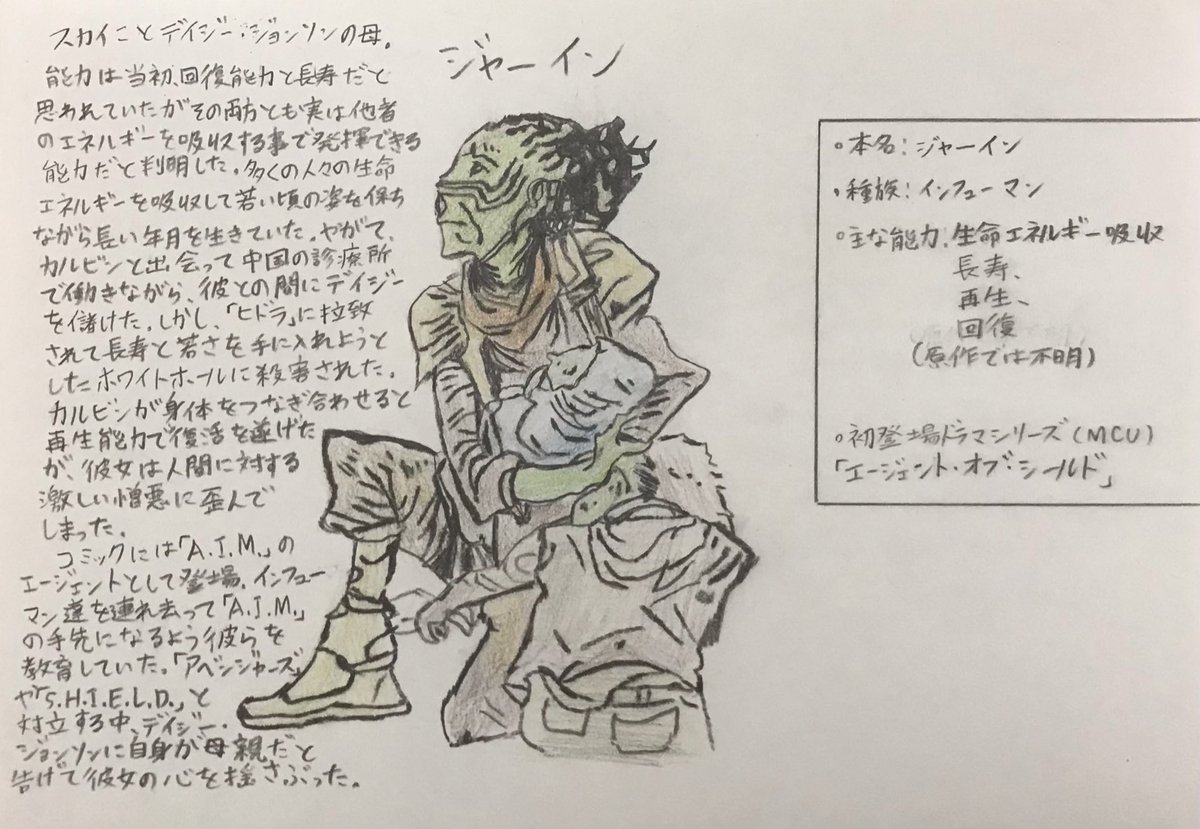 ジャーイン
スカイことデイジー・ジョンソンの母。
能力は当初、回復能力と長寿だと
思われていたがその両方とも実は他者
のエネルギーを吸収する事で発揮できる
能力だと判明した。多くの人々の生命
エネルギーを吸収して若い頃の姿を保ち
ながら長い年月を生きていた。やがて、
カルビンと出会って中国の診療所
で働きながら、彼との間にデイジー
を儲けた。しかし、「ヒドラ」に拉致
されて長寿と若さを手に入れようと
したホワイトホールに殺害された。
カルビンが身体をつなぎ合わせると
再生能力で復活を遂げた
が、彼女は人間に対する
激しい憎悪に歪んで
しまった。
コミックには「A.I.M.」の
エージェントとして登場。インフュー
マン達を連れ去って「A.I.M.」
の手先になるよう彼らを
教育していた。「アベンジャーズ」
や「S.H.I.E.L.D.」と
対立する中、デイジー・
ジョンソンに自身が母親だと
告げて彼女の心を揺さぶった。
・本名:ジャーイン
・種族:インフューマン
・主な能力:生命エネルギー吸収
長寿、
再生、
回復
(原作では不明)
・初登場ドラマシリーズ(MCU)
「エージェント・オブ・シールド」